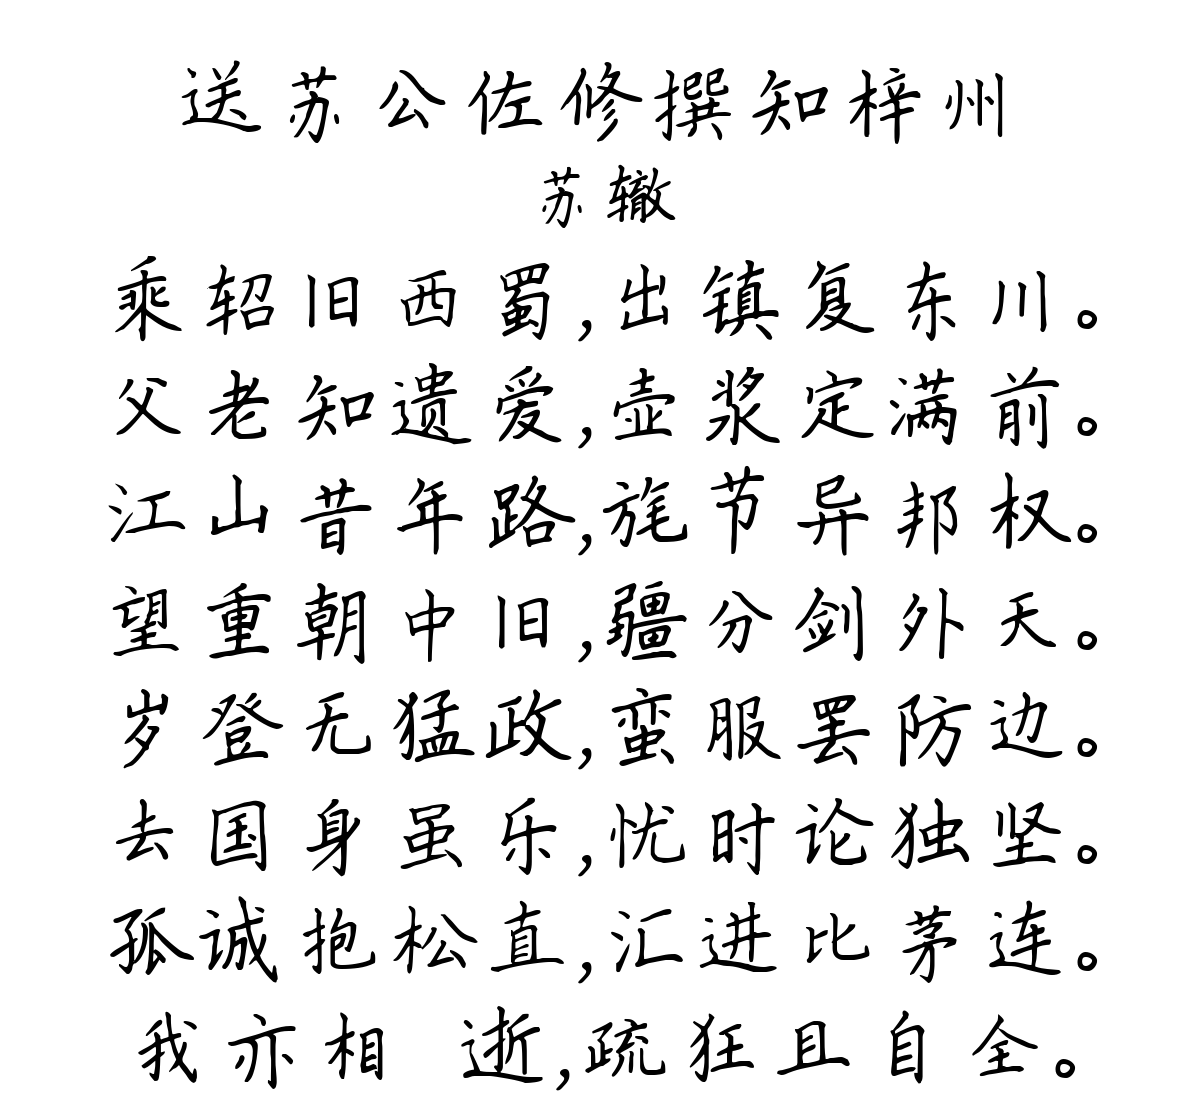 送苏公佐修撰知梓州
苏辙
乘轺旧西蜀,出镇复东川。
父老知遗爱,壶浆定满前。
江山昔年路,旄节异邦权。
望重朝中旧,疆分剑外天。
岁登无猛政,蛮服罢防边。
去国身虽乐,忧时论独坚。
孤诚抱松直,汇进比茅连。
我亦相 逝,疏狂且自全。